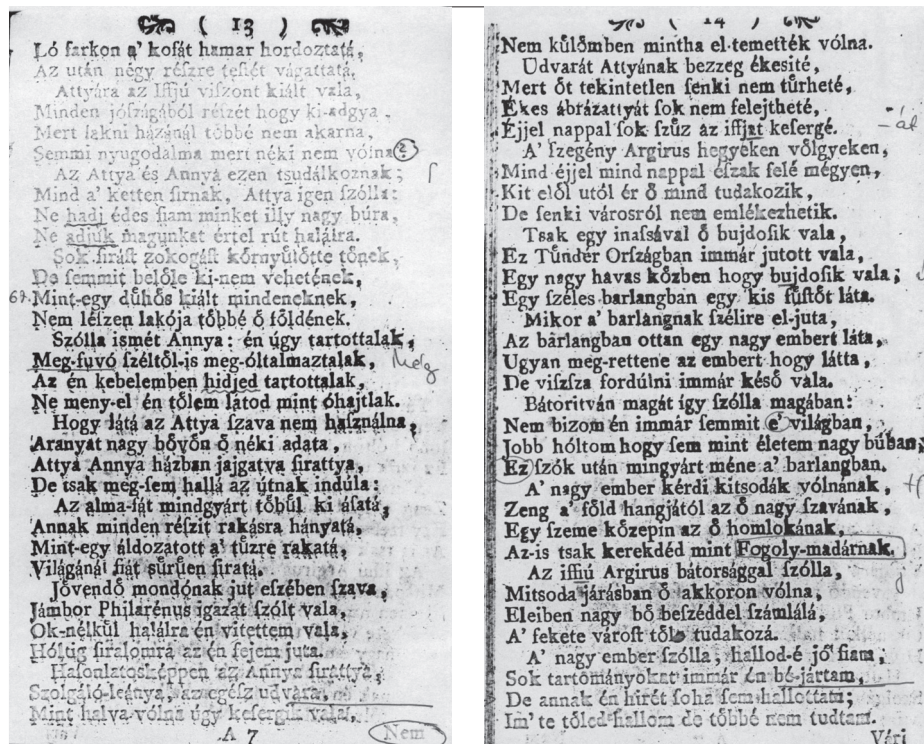 ( 13 )
Ló ſarkon a' kofát hamar hordoztatá,
Az után négy réſzre teſtét vágattatá,
Attyára az Iffjú viſzont kiált vala,
Minden jóſzágából réſzét hogy ki-adgya,
Mert lakni házánál többé nem akarna,
Semmi nyugodalma mert néki nem vólna
Az Attya és Annya ezen tsudálkoznak;
Mind a' ketten ſirnak, Attya igen ſzólla:
Ne hadj édes fiam minket illy nagy búra,
Ne adjuk magunkat értel rút halálra.
Sok ſiráſt zokogáſt kőrnyűlőtte tőnek,
De ſemmit belőle ki-nem vehetének,
67. Mint-egy dűhős kiált mindeneknek,
Nem léſzen lakója tőbbé ő főldének.
Szólla ismét Annya: én úgy tartottalak,
Meg-fuvó ſzéltől-is meg-óltalmaztalak, Még
Az én kebelemben hidjed tartottalak,
Ne meny-el én tőlem látod mint óhajtlak.
Hogy látá az Attya ſzava nem haſználna,
Aranyat nagy bővőn ő néki adata,
Attya Annya házban jajgatva ſirattya,
De tsak meg-ſem hallá az útnak indúla:
Az alma-fát mindgyárt tőbűl ki áſatá,
Annak minden réſzit rakásra hányatá,
Mint-egy áldozatott a' tűzre rakatá,
Világánál fiát sűrűen ſiratá.
Jővendő mondónak jut eſzében ſzava,
Jámbor Philarénus igazat ſzólt vala,
Ok-nélkűl halálra én vitettem vala,
Hóltig ſiralomra az én fejem juta.
Haſonlatosképpen az Annya ſirattya,
Szolgáló-leánya, az egéſz udvara,
Mint halva vólna úgy keſergik vala,
A 7 Nem
( 14 )
Nem kűlőmben mintha el-temették vólna.
Udvarát Attyának bezzeg ékesité,
Mert őt tekintetlen ſenki nem tűrheté,
Ékes ábrázattyát ſok nem felejtheté,
Éjjel nappal ſok ſzűz az iffjat keſergé. -ál
A' ſzegény Argirus hegyeken vőlgyeken,
Mind éjjel mind nappal éſzak felé mégyen,
Kit elől utól ér ő mind tudakozik,
De ſenki városról nem emlékezhetik.
Tsak egy inaſsával ő bujdoſik vala,
Ez Tűnder Orſzágban immár jutott vala,
Egy nagy havas kőzben hogy bujdoſik vala;
Egy ſzéles barlangban egy kis fűſtőt láta.
Mikor a' barlangnak ſzélire el-juta,
Az barlangban ottan egy nagy embert láta,
Ugyan meg-rettene az embert hogy látta,
De viſzſza fordúlni immár késő vala.
Bátoritván magát így ſzólla magában:
Nem bizom én immár ſemmit e' világban,
Jobb hóltom hogy ſem mint életem nagy búban,
Ez ſzók után mingyárt méne a' barlangban.
A' nagy ember kérdi kitsodák vólnának,
Zeng a' főld hangjától az ő nagy ſzavának,
Egy ſzeme kőzepin az ő homlokának,
Az-is tsak kerekdéd mint Fogoly-madárnak.
Az iffiú Argirus bátorsággal ſzólla,
Mitsoda járásban ő akkoron vólna,
Eleiben nagy bő beſzéddel ſzámlálá,
A' fekete városſt tőle tudakozá.
A' nagy ember ſzólla; hallod-é jó fiam,
Sok tartományokat immár én bé-jártam,
De annak én hirét ſoha ſem hallottam;
Im' te tőled hallom de tőbbé nem tudtam.
Vári